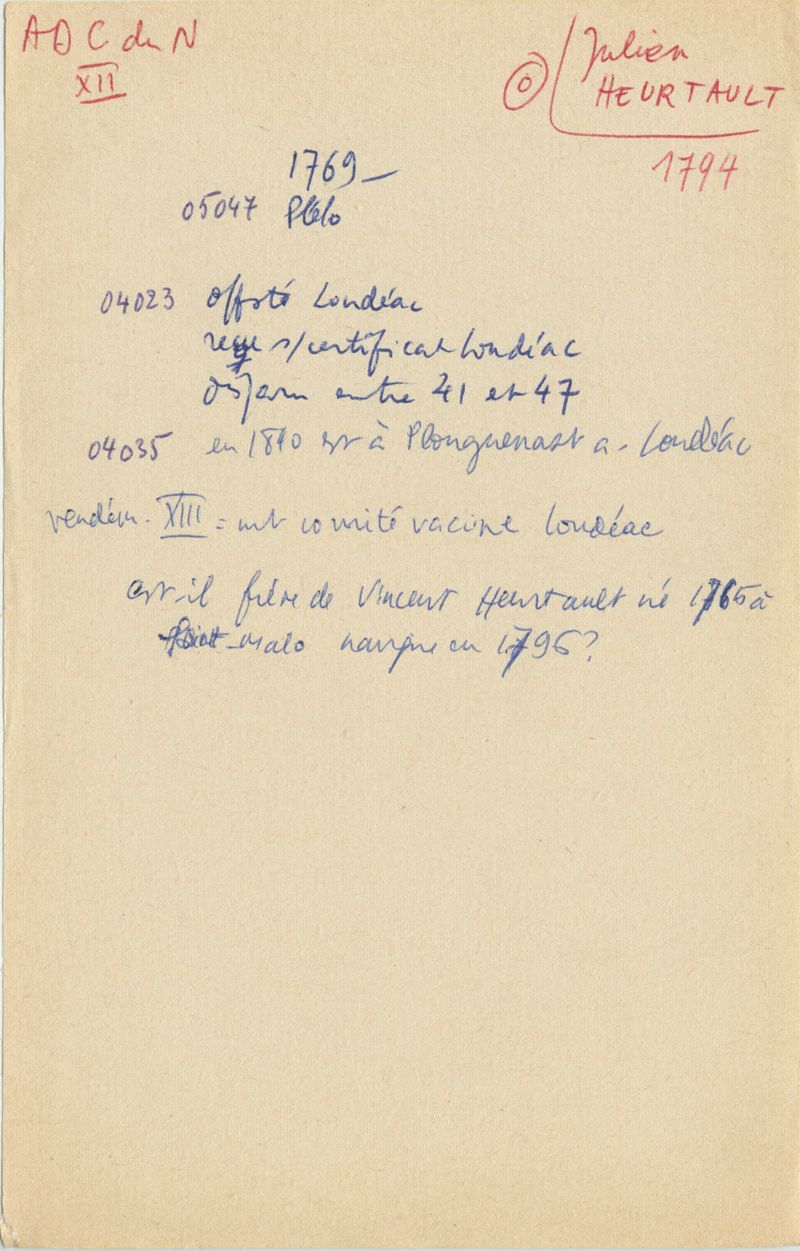 ADC du N
XII
O Julien
HEURTAULT
1794
1769 –
05047 Plélo
04023 off sté Loudéac
reçu s/certificat Loudéac
entre 41 et 47
04035 en 1810 est à Plouguenast a. Loudéac
vendém. XIII = mb comité vaccine Loudéac
est-il frère de Vincent Heurtault né 1765 à
Saint-Malo navigue en 1796?